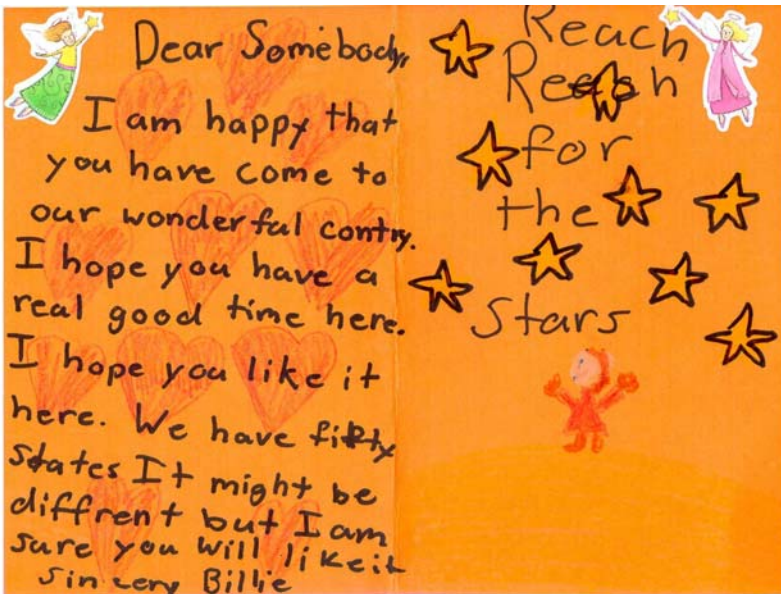 Dear Somebody,
I am happy that
you have come to
our wonderful contry.
I hope you have a
real good time here.
I hope you like it
here. We have fifty
states It might be
diffrent but I am
sure you will like it
sincery Billie
Reach
Reach
for
the
stars